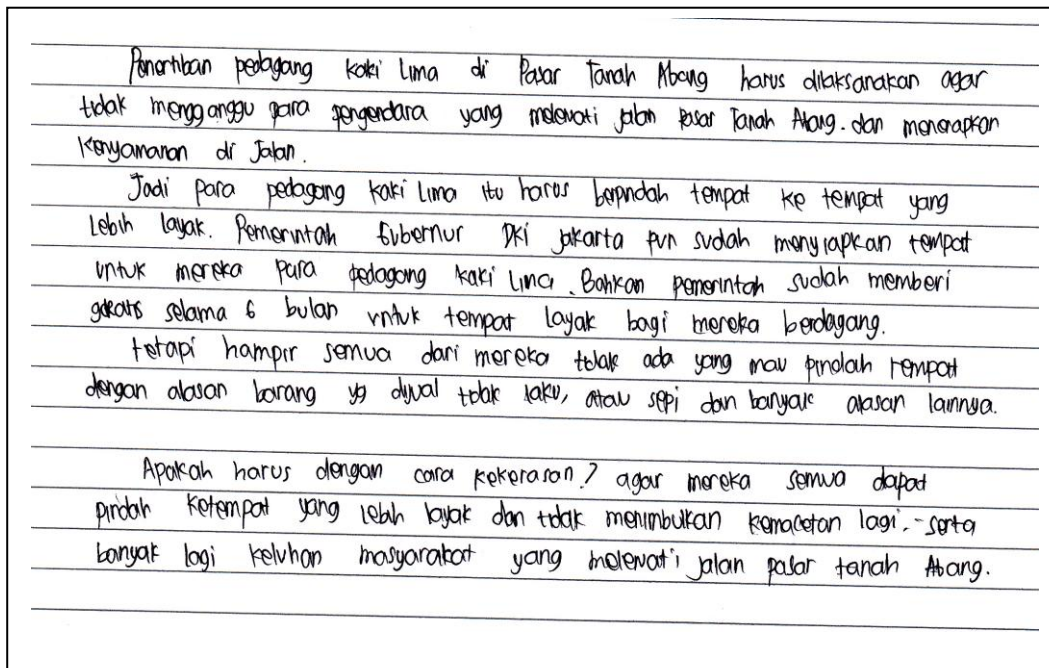 Penertiban pedagang kaki lima di Pasar Tanah Abang harus dilaksanakan agar
tidak mengganggu para pengendara yang melewati jalan Pasar Tanah Abang. dan menerapkan
Kenyamanan di Jalan.
Jadi para pedagang kaki lima itu harus berpindah tempat ke tempat yang
Lebih layak. Pemerintah Gubernur DKI jakarta pun sudah menyiapkan tempat
untuk mereka para pedagang kaki Lima. Bahkan pemerintah sudah memberi
selama 6 bulan untuk tempat layak bagi mereka berdagang.
tetapi hampir semua dari mereka tidak ada yang mau pindah tempat
dengan alasan barang yg dijual tidak laku, atau sepi dan banyak alasan lainnya.
Apakah harus dengan cara kekerasan? agar mereka semua dapat
pindah ketempat yang lebih layak dan tidak menimbulkan kemacetan lagi,- serta
banyak lagi keluhan masyarakat yang melewati jalan pasar tanah Abang.